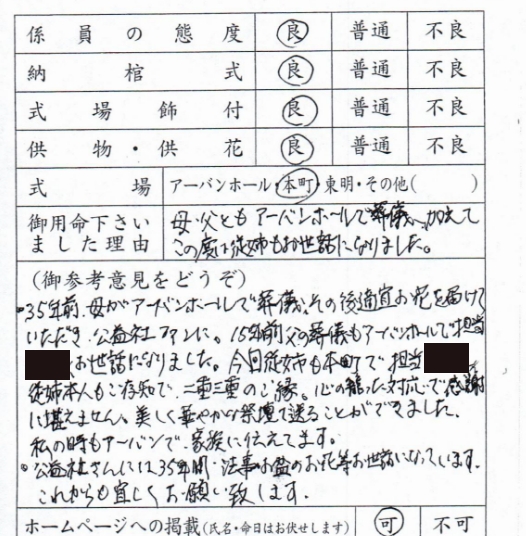 係員の態度 良 普通 不良
納棺式 良 普通 不良
式場飾付 良 普通 不良
供物・供花 良 普通 不良
式場 アーバンホール・本町・東明・その他( )
御用命下さいました理由 母・父ともアーバンホールで葬儀、加えて
この度は従姉もお世話になりました。
(御参考意見をどうぞ)
・35年前、母がアーバンホールで葬儀、その後適宜お花を届けて
いただき、公益社ファンに。15年前父の葬儀もアーバンホールで担当
お世話になりました。今回従姉も本町で担当
従姉本人もご存知で、二重三重のご縁。心の籠った対応で感謝
に堪えません。美しく華やかな祭壇で送ることができました。
私の時もアーバンで、家族に伝えてます。
・公益社さんには35年間、法事お盆のお花等お世話になっています。
これからも宜しくお願い致します。
ホームページへの掲載(氏名・命日はお伏せします) 可 不可